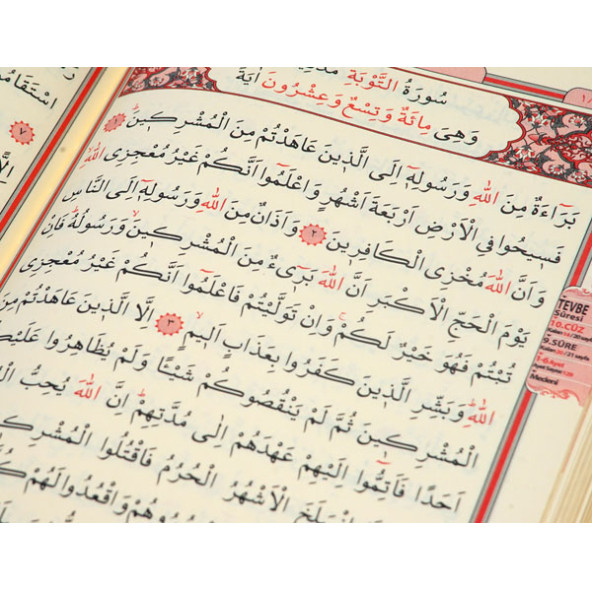 سُورَةُ التَّوْبَةِ
وَهِىَ مِائَةٌ وَتِسْعٌ وَعِشْرُونَ اٰيَةً
بَرَٓاءَةٌ مِنَ اللّٰهِ وَرَسُولِهٖٓ اِلَى الَّذٖينَ عَاهَدْتُمْ مِنَ الْمُشْرِكٖينَ ١
فَسٖيحُوا فِى الْاَرْضِ اَرْبَعَةَ اَشْهُرٍ وَاعْلَمُٓوا اَنَّكُمْ غَيْرُ مُعْجِزِى اللّٰهِ
وَاَنَّ اللّٰهَ مُخْزِى الْكَافِرٖينَ ٢ وَاَذَانٌ مِنَ اللّٰهِ وَرَسُولِهٖٓ اِلَى النَّاسِ
يَوْمَ الْحَجِّ الْاَكْبَرِ اَنَّ اللّٰهَ بَرٖٓىءٌ مِنَ الْمُشْرِكٖينَ وَرَسُولُهُ فَاِنْ
تُبْتُمْ فَهُوَ خَيْرٌ لَكُمْ وَاِنْ تَوَلَّيْتُمْ فَاعْلَمُٓوا اَنَّكُمْ غَيْرُ مُعْجِزِى
اللّٰهِ وَبَشِّرِ الَّذٖينَ كَفَرُوا بِعَذَابٍ اَلٖيمٍ ٣ اِلَّا الَّذٖينَ عَاهَدْتُمْ مِنَ
الْمُشْرِكٖينَ ثُمَّ لَمْ يَنْقُصُوكُمْ شَيْئًا وَلَمْ يُظَاهِرُوا
اَحَدًا فَاَتِمُّٓوا اِلَيْهِمْ عَهْدَهُمْ اِلٰى مُدَّتِهِمْ اِنَّ اللّٰهَ يُحِبُّ
الْاَشْهُرُ الْحُرُمُ فَاقْتُلُوا
وَاقْعُدُوا لَهُمْ
٧
TEVBE
Sûresi
10.CÜZ
9.SÛRE
1-6.Ayet
Medenî